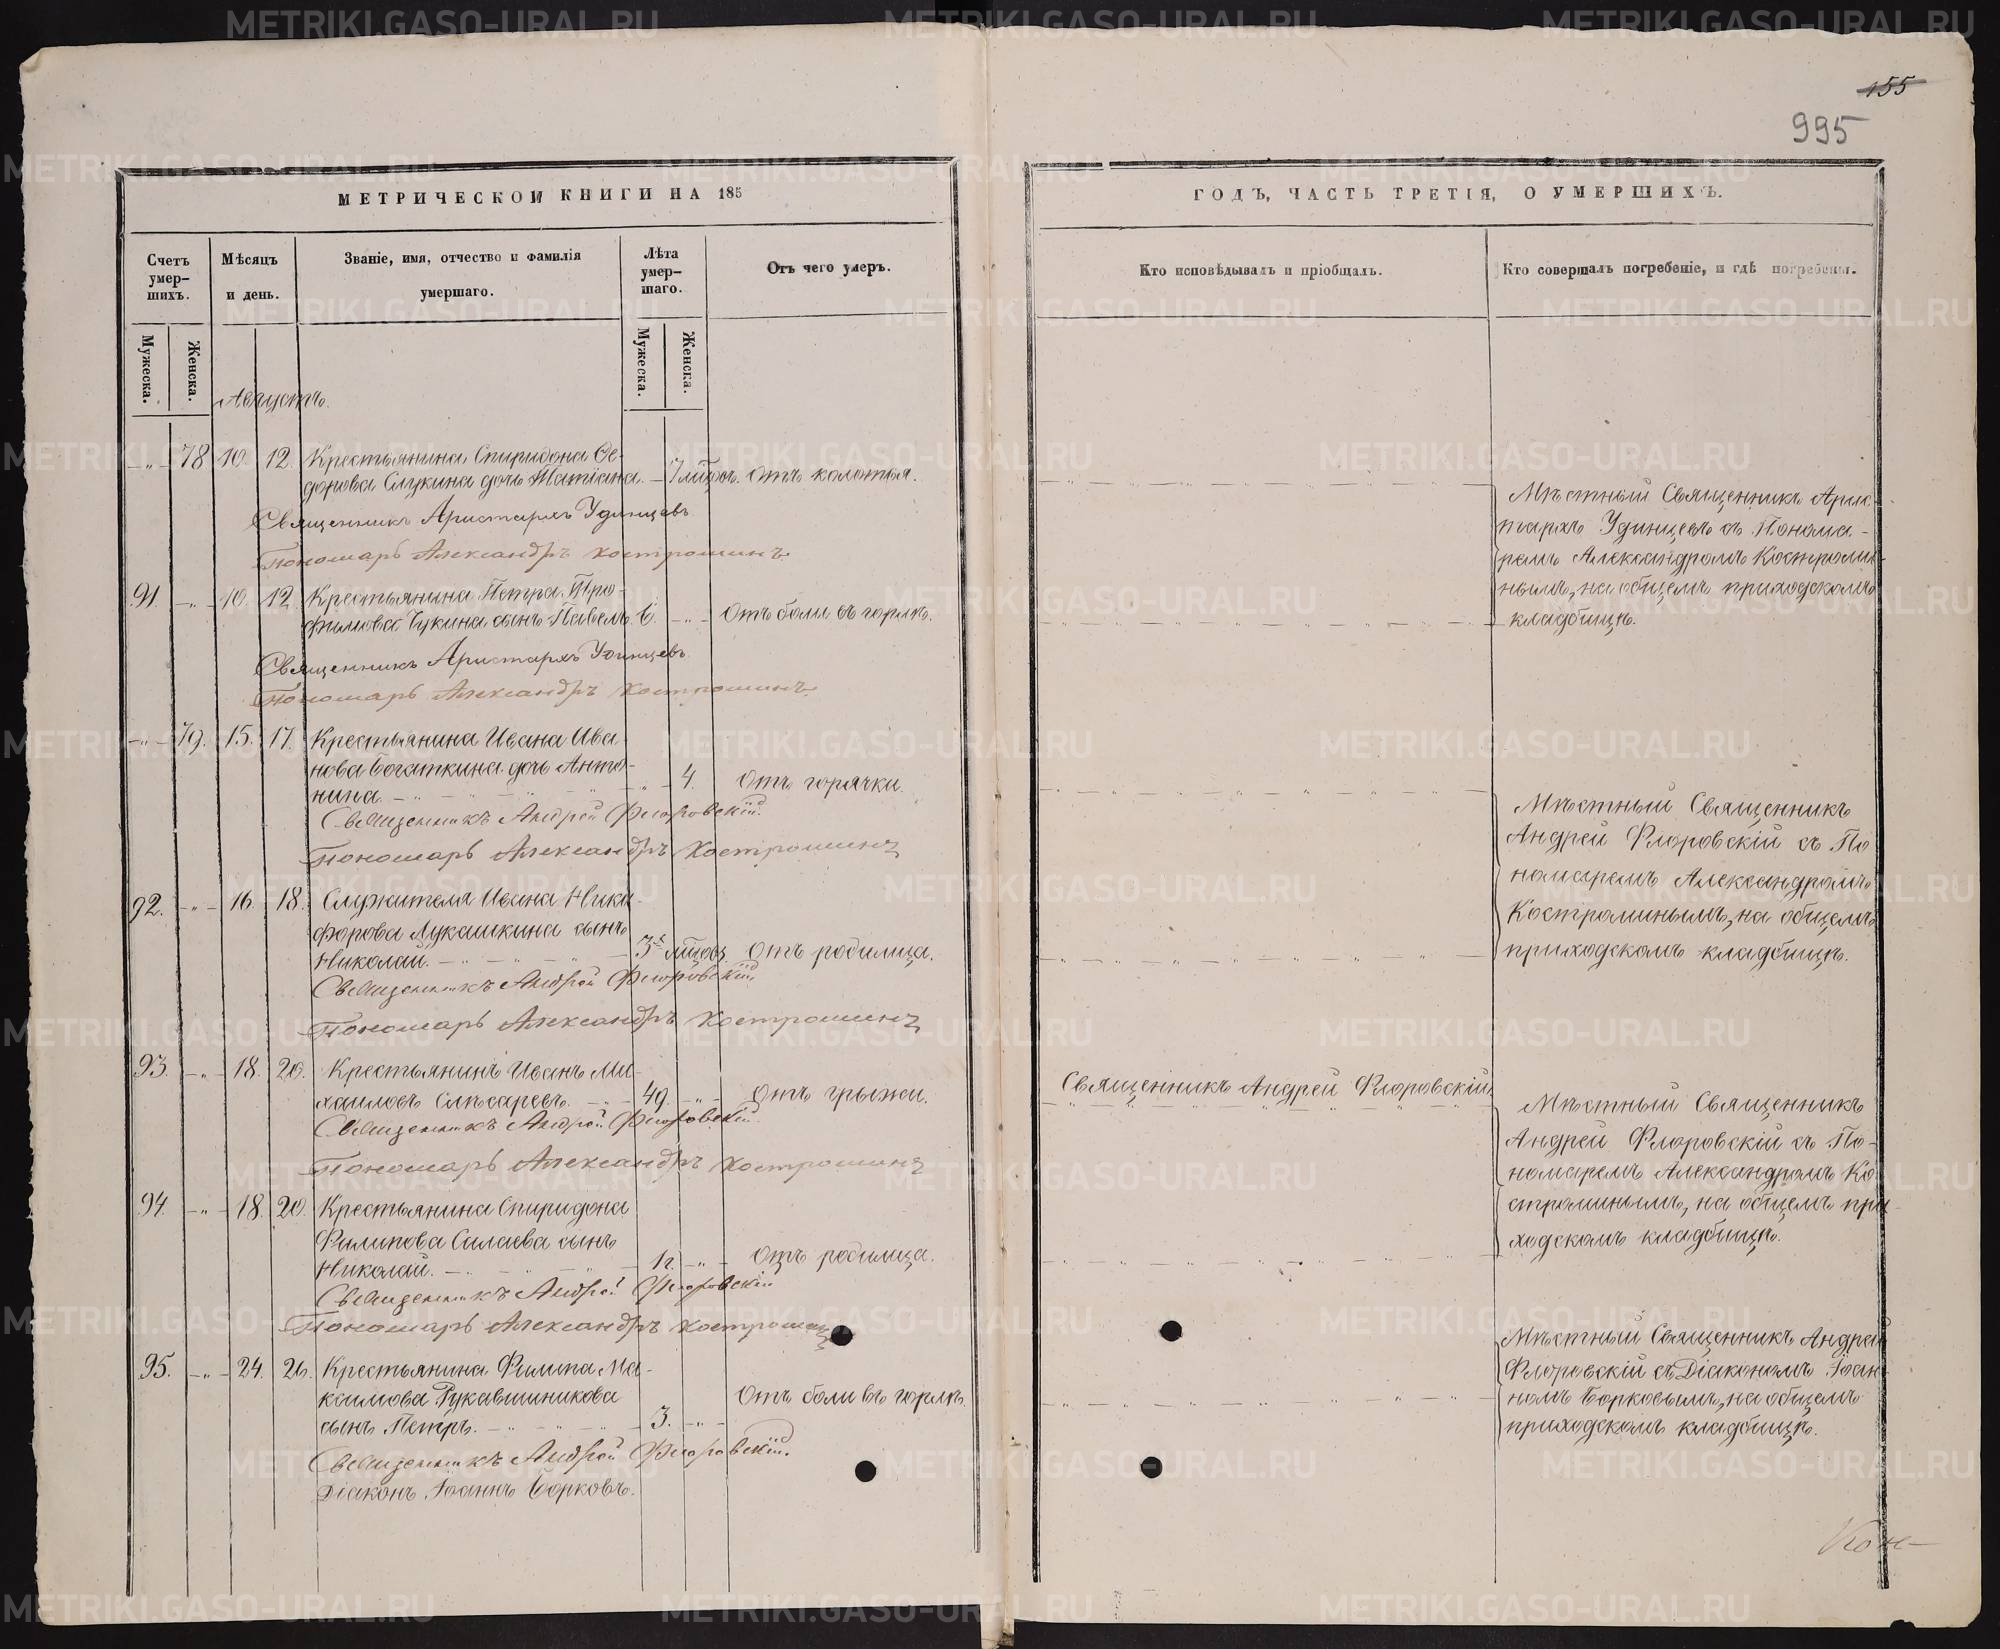 155
995
МЕТРИЧЕСКОЙ КНИГИ НА 185
ГОДЪ, ЧАСТЬ ТРЕТІЯ, О УМЕРШИХЪ.
Счетъ умер-шихъ.
Мужеска.
Женска.
Мѣсяцъ и день.
Званіе, имя, отчество и фамилія умершаго.
Лѣта умер-шаго.
Мужеска.
Женска.
Отъ чего умеръ.
Кто исповѣдывалъ и пріобщалъ.
Кто совершалъ погребеніе, и гдѣ погребены.
Августъ.
78 10. 12. Крестьянина Спиридона Ѳе-
дорова Слукина дочь Татіана. 7 мѣсяц. отъ колотья.
Священникъ Аристархъ Удинцевъ
Пономарь Александръ Костроминъ
Мѣстный Священникъ Арис-
тархъ Удинцевъ съ Понома-
ремъ Александромъ Костроми-
нымъ, на общемъ приходскомъ
кладбищѣ.
91. 10. 12. Крестьянина Петра Тро-
фимова Чукина сынъ Павелъ. 6. Отъ боли въ горлѣ.
Священникъ Аристархъ Удинцевъ
Пономарь Александръ Костроминъ
79. 15. 17. Крестьянина Ивана Ива-
нова Богаткина дочь Анто-
нина. 4. Отъ горячки.
Священникъ Андрей Флоровскій.
Пономарь Александръ Костроминъ
Мѣстный Священникъ
Андрей Флоровскій съ По
номаремъ Александромъ
Костроминымъ, на общемъ
приходскомъ кладбищѣ.
92. 16. 18. Служителя Ивана Ники-
форова Лукашкина сынъ
Николай. 3х мѣсяц. Отъ родимца.
Священникъ Андрей Флоровскій.
Пономарь Александръ Костроминъ
93. 18. 20. Крестьянинъ Иванъ Ми-
хаиловъ Слѣсаревъ. 49. Отъ грыжи.
Священникъ Андрей Флоровскій.
Священникъ Андрей Флоровскій.
Пономарь Александръ Костроминъ
Мѣстный Священникъ
Андрей Флоровскій съ По-
номаремъ Александромъ Ко-
строминымъ, на общемъ при-
ходскомъ кладбищѣ.
94. 18. 20. Крестьянина Спиридона
Филипова Силаева сынъ
Николай. Отъ родимца.
Священникъ Андрей Флоровскій
Пономарь Александръ Костроминъ
95. 24. 26. Крестьянина Филипа Ма-
ксимова Рукавишникова
сынъ Петръ. 3. Отъ боли въ горлѣ.
Священникъ Андрей Флоровскій.
Діаконъ Іоаннъ Борковъ.
Мѣстный Священникъ Андрей
Флоровскій съ Діакономъ Іоан-
номъ Борковымъ, на общемъ
приходскомъ кладбищѣ.
METRIKI.GASO-URAL.RU